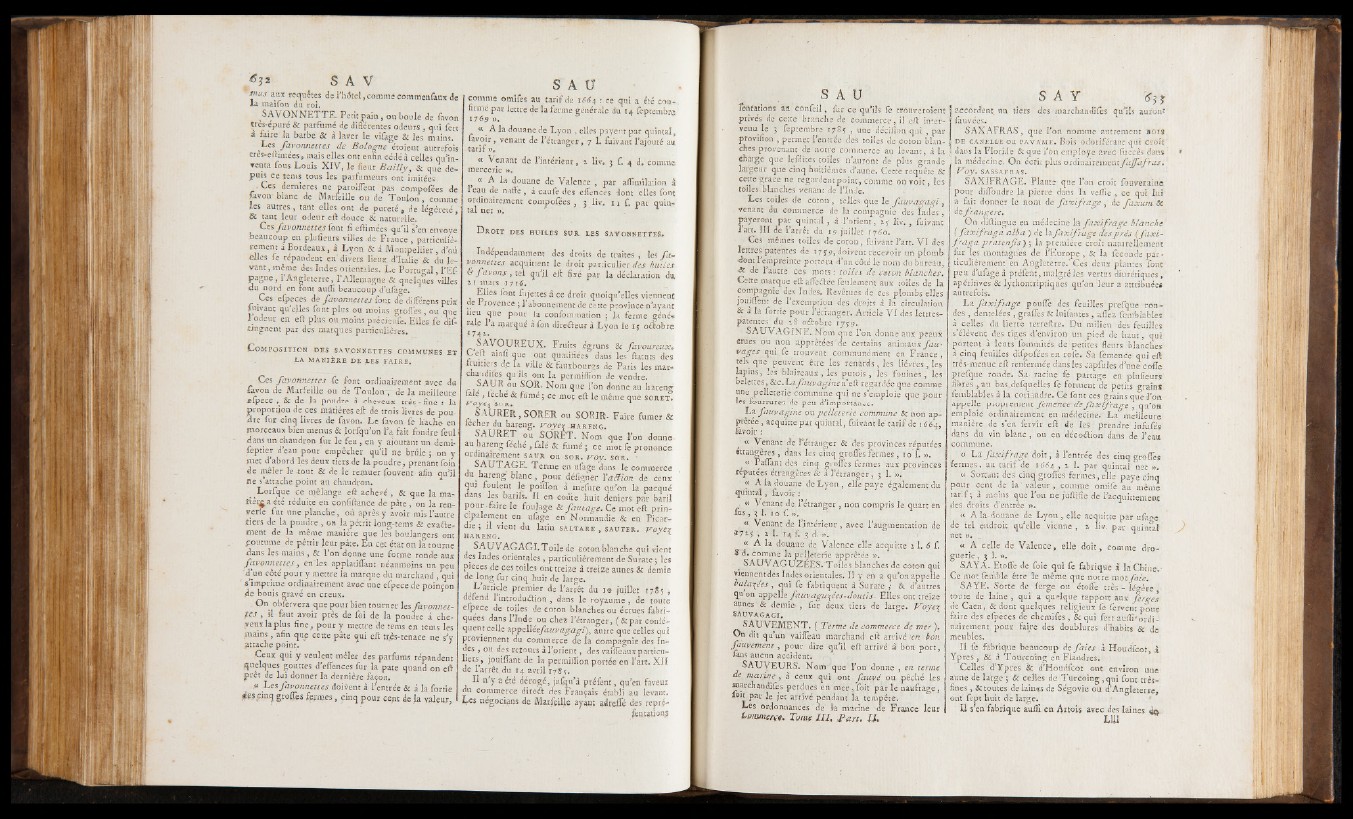 632 S A V
maux aux requêtes de l'hôtel, comme commensaux de
la maison du roi.
SAVONNETTE. Petit pain, ou boule de savon
très-épuré & parfumé de différentes odeurs, qui sert
à faire la barbe & à laver le visage & les mains.
Les savonnettes de Bologne étoient autrefois
très-estimées, mais elles ont enfin cédé à celles qu'in-
venta sous Louis XIV, le sieur Bailly, & que de-
puis ce tems tous les parfumeurs ont imitées.
Ces dernières ne paroissent pas composées de
savon blanc de Marseille ou de Toulon, comme
les autres, tant elles ont de pureté, de légèreté,
& tant leur odeur est douce & naturelle.
Ces savonnettes sont si estimées qu'il s'en envoye
beaucoup en plusieurs villes de France, particulié-
rement à Bordeaux, à Lyon & à Montpellier, d'où
elles se répandent en divers lieux d'Italie & du le-
vant, même des Indes orientales. Le Portugal, l'Es-
pagne, l'Angleterre, l'Allemagne & quelques villes
du nord en font aussi beaucoup d'usage.
Ces espèces de savonnettes sont de différens prix
suivant qu'elles sont plus ou moins grosses, ou que
l'odeur en est plus ou moins précieuse. Elles se dis-
tinguent par des marques particulières.
COMPOSITION DES SAVONNETTES COMMUNES ET
LA MANIÈRE DE LES FAIRE.
Ces savonnettes se font ordinairement avec du
savon de Marseille ou de Toulon, de la meilleure
espece, & de la poudre à cheveux très-fine : la
proportion de ces matières est de trois livres de pou-
dre sur cinq livres de savon. Le savon se hache en
morceaux bien menus & lorsqu'on l'a fait fondre seul
dans un chaudron sur le feu, en y ajoutant un demi-
septier d'eau pour empêcher qu'il ne brûle; on y
met d'abord les deux tiers de la poudre, prenant soin
de mêler le tout & de le remuer souvent afin qu'il
ne s'attache point au chaudron.
Lorsque ce mélange est achevé, & que la ma-
tière a été réduite en consistance de pâte, on la ren-
verse sur une planche, où après y avoir mis l'autre
tiers de la poudre, on la pétrit long-tems & exacte-
ment de la même manière que les boulangers ont
coutume de pétrir leur pâte. En cet état on la tourne
dans les mains, & l'on donne une forme ronde aux
savonnettes, en les applatissant néanmoins un peu
d'un côté pour y mettre la marque du marchand, qui
s'imprime ordinairement avec une espece de poinçon
de bouis gravé en creux.
On observera que pour bien tourner les savonnet-
tes, il faut avoir près de soi de la poudre à che-
veux la plus fine, pour y mettre de tems en tems les
mains, afin que cette pâte qui est très-tenace ne s'y
attache point.
Ceux qui y veulent mêler des parfums répandent
quelques gouttes d'essences sur la pâte quand on est
prêt de lui donner la dernière façon.
« Les savonnettes doivent à l'entrée & à la sortie
des cinq grosses fermes, cinq pour cent de la valeur,
S A U
comme omises au tarif de 1664 : ce qui a été con-
firmé par lettre de la ferme générale du 14 septembre
1769 ».
« A la douane de Lyon, elles payent par quintal,
savoir, venant de l'étranger, 7 l. suivant l'ajouté au
tarif ».
« Venant de l'intérieur, 2 liv. 3 s. 4 d. comme
mercerie ».
« A la douane de Valence, par assimilation à
l'eau de naffe, à cause des essences dont elles sont
ordinairement composées, 3 liv. 11 s. par quin-
tal net ».
DROIT DES HUILES SUR LES SAVONNETTES.
Indépendamment des droits de traites, les sa-
vonnettes acquittent le droit particulier des huiles
& savons, tel qu'il est fixé par la déclaration du
21 mars 1716.
Elles sont sujettes à ce droit quoiqu'elles viennent
de Provence; l'abonnement de cette province n'ayant
lieu que pour la consommation; la ferme géné-
rale l'a marqué à son directeur à Lyon le 15 octobre
1742.
SAVOUREUX. Fruits égruns & savoureux.
C'est ainsi que sont qualifiées dans les statuts des
fruitiers de la ville & fauxbourgs de Paris les mar-
chandises qu'ils ont la permission de vendre.
SAUR ou SOR. Nom que l'on donne au hareng
salé, séché & fumé; ce mot est le même que SORET.
Voyez SOR.
SAURER, SORER ou SORIR. Faire fumer &
sécher du hareng. Voyez HARENG.
SAURET ou SORET. Nom que l'on donne
au hareng séché, salé & fumé; ce mot se prononce
ordinairement SAUR ou SOR. Voy. SOR.
SAUTAGE. Terme en usage dans le commerce
du hareng blanc, pour désigner l'action de ceux
qui foulent le poisson à mesure qu'on la pacqué
dans les barils. Il en coûte huit deniers par baril
pour faire le foulage & sautage. Ce mot est prin-
cipalement en usage en Normandie & en Picar-
die; il vient du latin SALTARE, SAUTER. Voyez
HARENG.
SAUVAGAGI. Toile de coton blanche qui vient
des Indes orientales, particulièrement de Surate; les
pieces de ces toiles ont treize à treize aunes & demie
de long sur cinq huit de large.
L'article premier de l'arrêt du 10 juillet 1785,
défend l'introduction, dans le royaume, de toute
espece de toiles de coton blanches ou écrues fabri-
quées dans l'Inde ou chez l'étranger, (& par consé-
quent celle appellée sauvagagi), autre que celles qui
proviennent du commerce de la compagnie des In-
des, ou des retours à l'orient, des vaisseaux particu-
liers, jouissant de la permission portée en l'art. XII
de l'arrêt du 14 avril 1785.
Il n'y a été dérogé, jusqu'à présent, qu'en faveur
du commerce direct des Français établi au levant.
Les négocians de Marseille ayant adressé des repré-
sentations
S A U
sentations au conseil, sur ce qu'ils se trouveroient
privés de cette branche de commerce, il est inter-
venu le 3 septembre 1785, une décision qui, par
provision, permet l'entrée des toiles de coton blan-
ches provenant de notre commerce au levant, à la
charge que lesdites toiles n'auront de plus grande
largeur que cinq huitièmes d'aune. Cette requête &
cette grace ne regardent point, comme on voit, les
toiles blanches venant de l'Inde.
Les toiles de coton, telles que le sauvagagi,
venant du commerce de la compagnie des Indes,
payeront par quintal, à l'orient, 25 liv., suivant
l'art. III de l'arrêt du 19 juillet 1760.
Ces mêmes toiles de coton, suivant l'art. VI des
lettres-patentes de 1759, doivent recevoir un plomb
dont l'empreinte portera d'un côté le nom du bureau,
& de l'autre ces mots : toiles de coton blanches.
Cette marque est affectée seulement aux toiles de la
compagnie des Indes. Revêtues de ces plombs elles
jouissent de l'exemption des droits à la circulation
& à la sortie pour l'étranger. Article VI des lettres-
patentes du 28 octobre 1759.
SAUVAGINE. Nom que l'on donne aux peaux
crues ou non apprêtées de certains animaux sau-
vages qui se trouvent communément en France,
tels que peuvent être les renards, les lièvres, les
lapins, les blaireaux, les putois, les fouines, les
belettes, &c. La sauvagine n'est regardée que comme
une pelleterie commune qui ne s'emploie que pour
les fourrures de peu d'importance.
La sauvagine ou pelleterie commune & non ap-
prêtée, acquitte par quintal, suivant le tarif de 1664,
savoir :
« Venant de l'étranger & des provinces réputées
étrangères, dans les cinq grosses fermes, 10 s. ».
« Passant des cinq grosses fermes aux provinces
réputées étrangères & à l'étranger, 3 l. ».
« A la douane de Lyon, elle paye également du
quintal, savoir :
« Venant de l'étranger, non compris le quart en
sus, 3 l. 10 s. ».
« Venant de l'intérieur, avec l'augmentation de
1725, 1 l. 14 s. 3 d. ».
« A la douane de Valence elle acquitte 1 l. 6 s.
8 d. comme la pelleterie apprêtée ».
SAUVAGUZÉES. Toiles blanches de coton qui
viennent des Indes orientales. Il y en a qu'on appelle
balazées, qui se fabriquent à Surate, & d'autres
qu'on appelle sauvaguzées-doutis. Elles ont treize
aunes & demie, sur deux tiers de large. Voyez
SAUVAGAGI.
SAUVEMENT. (Terme de commerce de mer).
On dit qu'un vaisseau marchand est arrivé en bon
sauvement, pour dire qu'il est arrivé à bon port,
sans aucun accident.
SAUVEURS. Nom que l'on donne, en terme
de marine, à ceux qui ont sauvé ou pêché les
marchandises perdues en mer, soit par le naufrage,
soit par le jet arrivé pendant la tempête.
Les ordonnances de la marine de France leur
Commerce. Tome III. Part. II.
S A Y 633
accordent un tiers des marchandises qu'ils auront
sauvées.
SAXAFRAS, que l'on nomme autrement BOIS
DE CANELLE OU PAVAME. Bois odoriférant qui croît
dans la Floride & que l'on employe avec succès dans
la médecine. On écrit plus ordinairement sassafras.
Voy. SASSAFRAS.
SAXIFRAGE. Plante que l'on croit souveraine
pour dissoudre la pierre dans la vessie, ce qui lui
a fait donner le nom de saxifrage, de saxum &
de frangere.
On distingue en médecine la saxifrage blanche
(saxifraga alba) & la saxifrage des prés (saxi-
fraga pratensis); la premiere croît naturellement
sur les montagnes de l'Europe, & la seconde par-
ticulièrement en Angleterre. Ces deux plantes sont
peu d'usage à présent, malgré les vertus diurétiques,
apéritives & lythontriptiques qu'on leur a attribuées
autrefois.
La saxifrage pousse des feuilles presque ron-
des, dentelées, grasses & luisantes, assez semblables
à celles du lierre terrestre. Du milieu des feuilles
s'élèvent des tiges d'environ un pied de haut, qui
portent à leurs sommités de petites fleurs blanches
à cinq feuilles disposées en rose. Sa semence qui est
très-menue est renfermée dans les capsules d'une cosse
presque ronde. Sa racine se partage en plusieurs
fibres, au bas desquelles se forment de petits grains
semblables à la coriandre. Ce sont ces grains que l'on
appelle proprement semence de saxifrage, qu'on
emploie ordinairement en médecine. La meilleure
manière de s'en servir est de les prendre infusés
dans du vin blanc, ou en décoction dans de l'eau
commune.
« La saxifrage doit, à l'entrée des cinq grosses
fermes, au tarif de 1664, 2 l. par quintal net ».
« Sortant des cinq grosses fermes, elle paye cinq
pour cent de la valeur, comme omise au même
tarif; à moins que l'on ne justifie de l'acquittement
des droits d'entrée ».
« A la douane de Lyon, elle acquitte par usage
de tel endroit qu'elle vienne, 2 liv. par quintal
net ».
« A celle de Valence, elle doit, comme dro-
guerie, 3 l. ».
SAYA. Etoffe de soie qui se fabrique à la Chine.
Ce mot semble être le même que notre mot soie.
SAYE. Sorte de serge ou étoffe très-légère,
toute de laine, qui a quelque rapport aux serges
de Caen, & dont quelques religieux se servent pour
faire des especes de chemises, & qui sert aussi ordi-
nairement pour faire des doublures d'habits & de
meubles.
Il se fabrique beaucoup de saies à Hondscot, à
Ypres, & à Tourcoing en Flandres.
Celles d'Ypres & d'Hondscot ont environ une
aune de large; & celles de Turcoing, qui sont très-
fines, & toutes de laines de Ségovie ou d'Angleterre,
ont sept huit de large.
Il s'en fabrique aussi en Artois avec des laines de
Llll